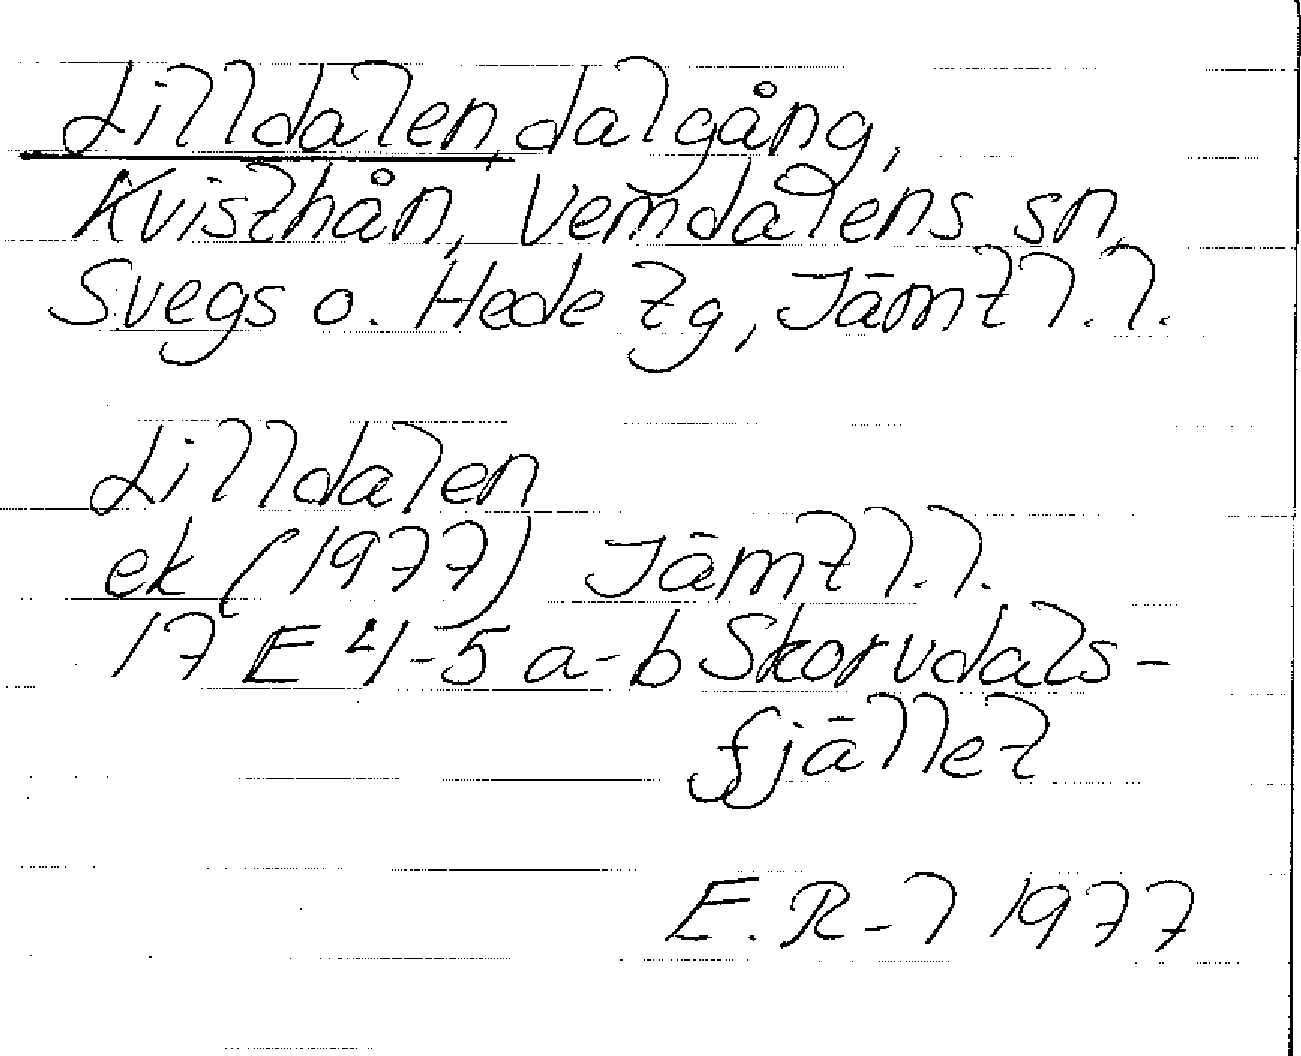 Lilldalen, dalgång,
Kvisthån, Vemdalens sn,
Svegs o. Hede tg, Jämtl. l.
Lilldalen
ek (1977) Jämtl. l.
17 E 4-5 a-b Skorvdals-
fjället
E. R-l 1977